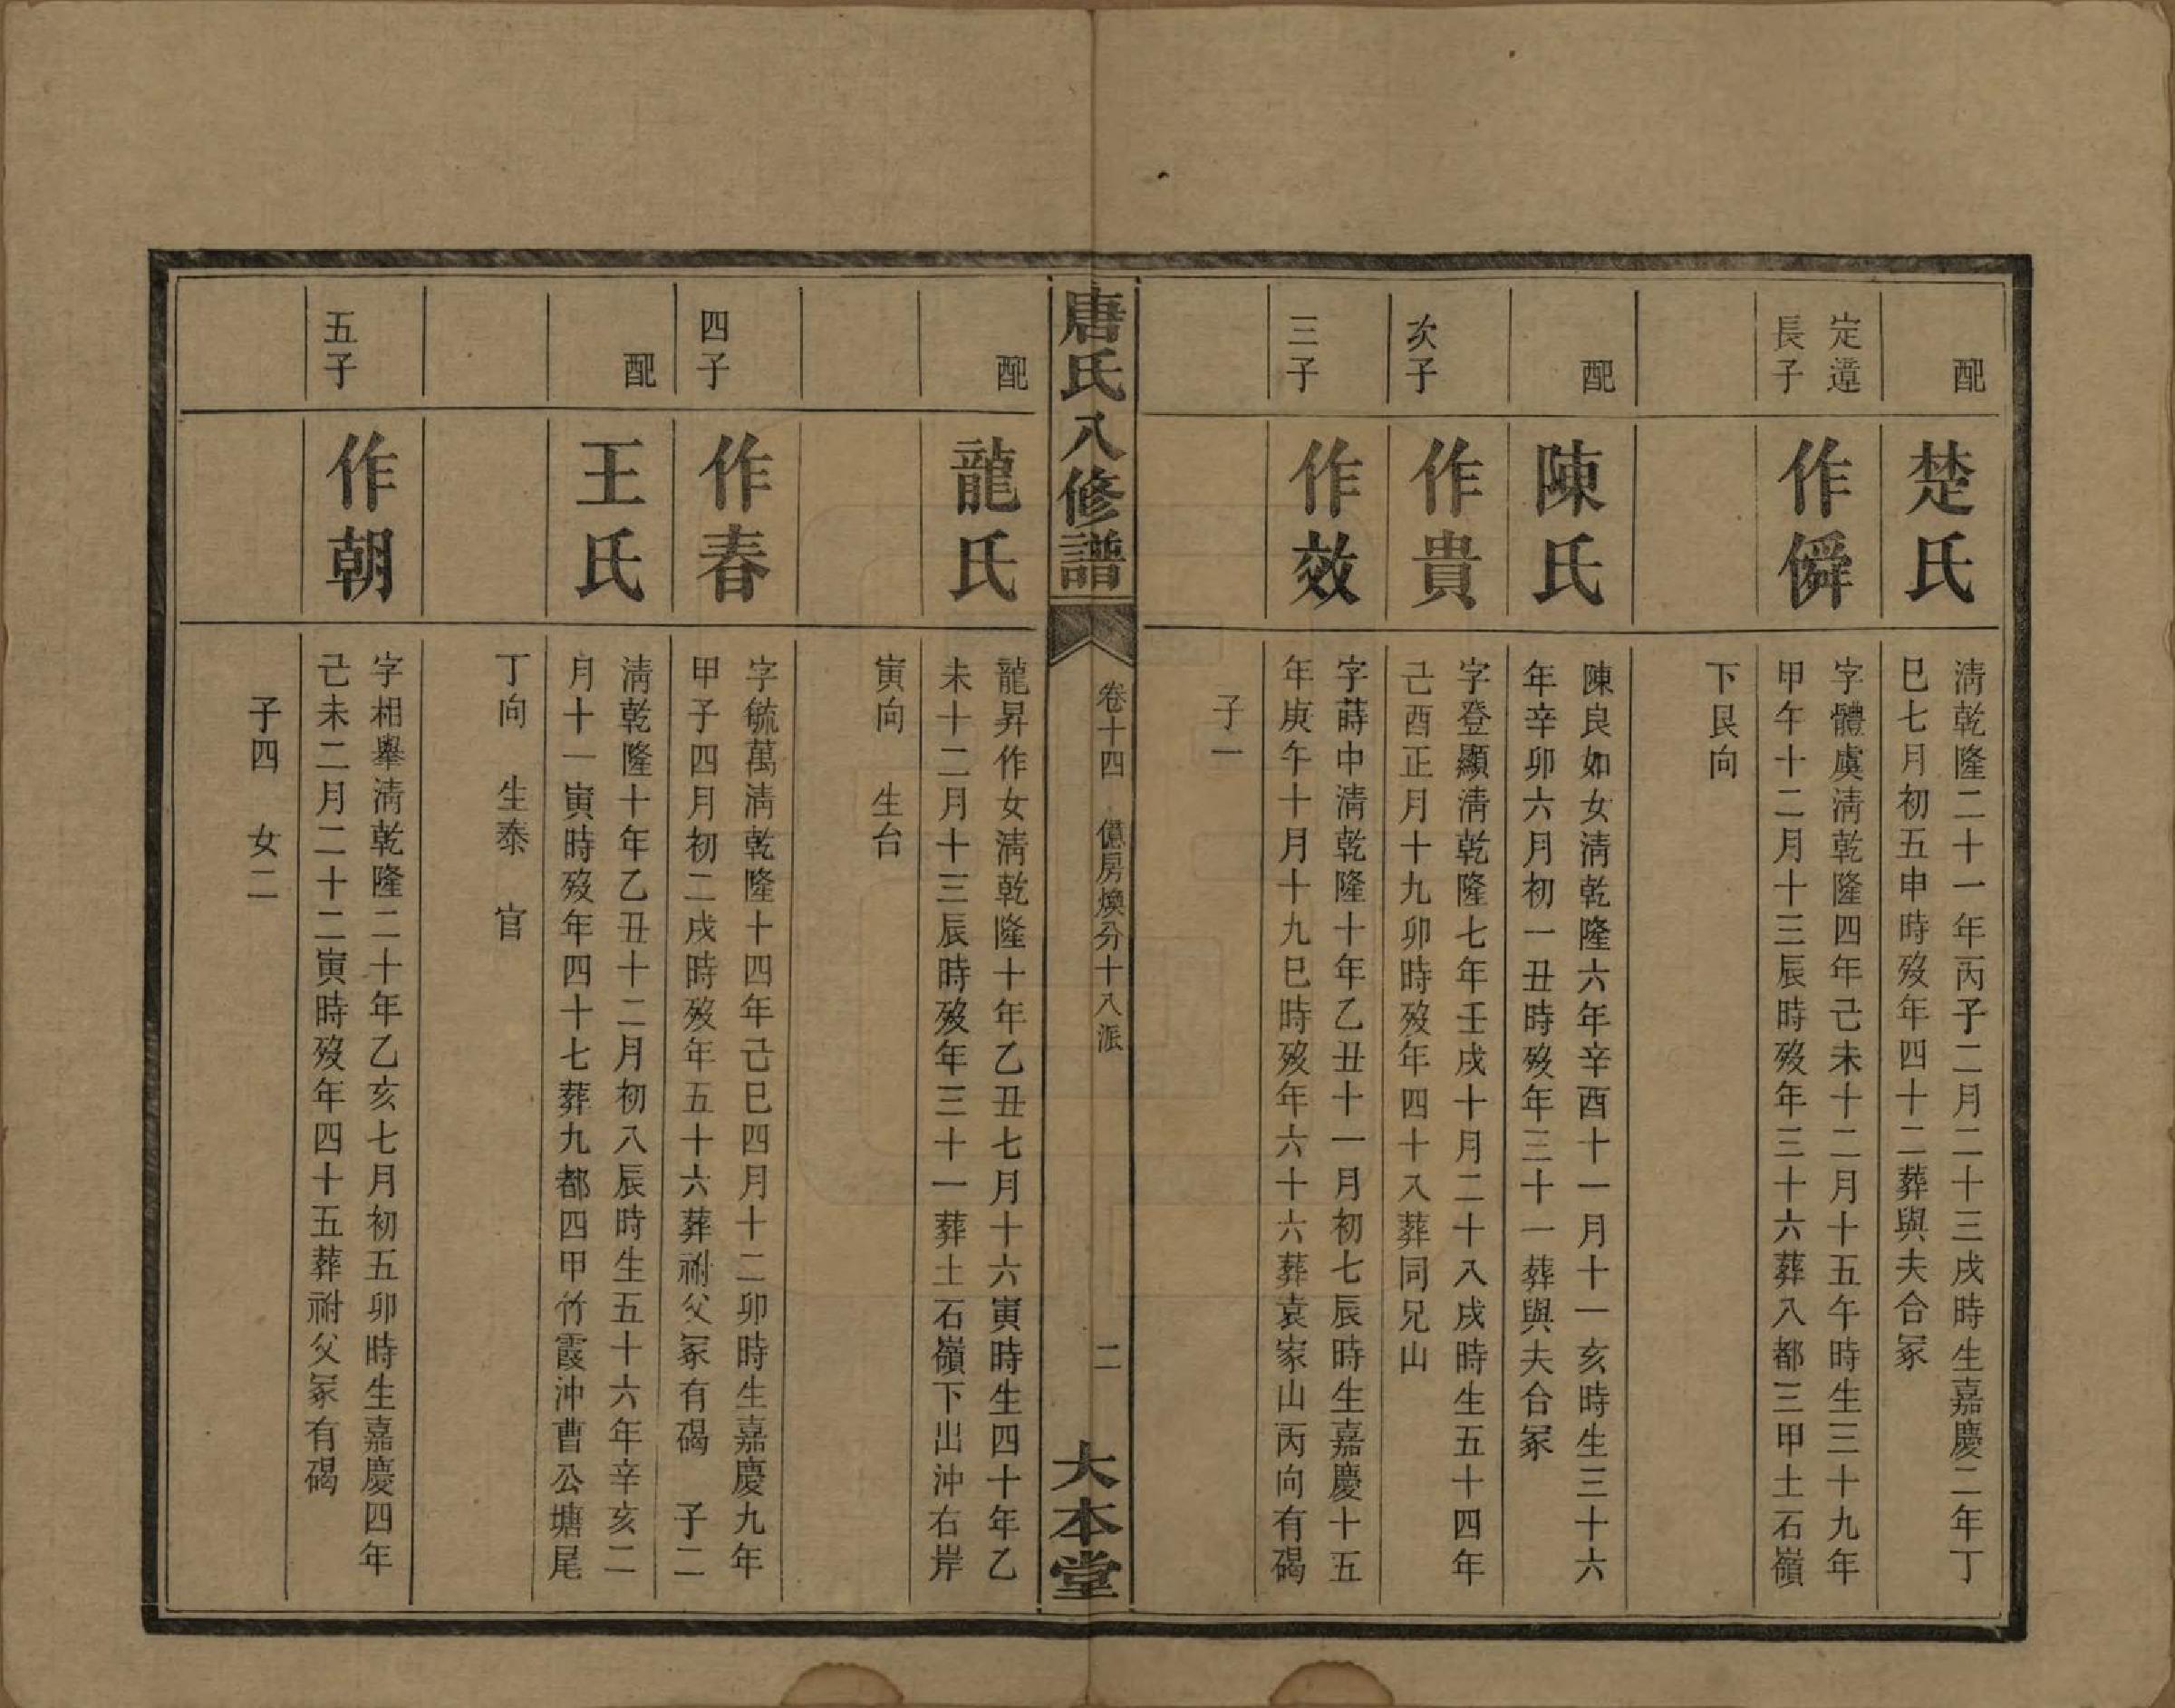 配
楚氏
淸乾隆二十一年丙子二月二十三戌時生嘉慶二年丁
巳七月初五申時歿年四十二葬與夫合冢
定違
長子
作僢
字體虞淸乾隆四年己未十二月十五午時生三十九年
甲午十二月十三辰時歿年三十六葬八都三甲土石嶺
下艮向
配
陳氏
陳良如女淸乾隆六年辛酉十一月十一亥時生三十六
年辛卯六月初一丑時歿年三十一葬與夫合冢
次子
作貴
字登顯淸乾隆七年壬戌十月二十八戌時生五十四年
己酉正月十九卯時歿年四十八葬同兄山
三子
作效
字蒔中淸乾隆十年乙丑十一月初七辰時生嘉慶十五
年庚午十月十九巳時歿年六十六葬袁家山丙向有碣
子一
唐氏八修譜
卷十四 億房煥分十八派
二
大本堂
配
龍氏
龍昇作女淸乾隆十年乙丑七月十六寅時生四十年乙
未十二月十三辰時歿年三十一葬土石嶺下出沖右岸
寅向 生台
四子
作春
字毓萬淸乾隆十四年己巳四月十二卯時生嘉慶九年
甲子四月初二戌時歿年五十六葬祔父冢有碣 子二
配
王氏
淸乾隆十年乙丑十二月初八辰時生五十六年辛亥二
月十一寅時歿年四十七葬九都四甲竹霞沖曹公塘尾
丁向 生泰 官
五子
作朝
字相舉淸乾隆二十年乙亥七月初五卯時生嘉慶四年
己未二月二十二寅時歿年四十五葬祔父冢有碣
子四 女二